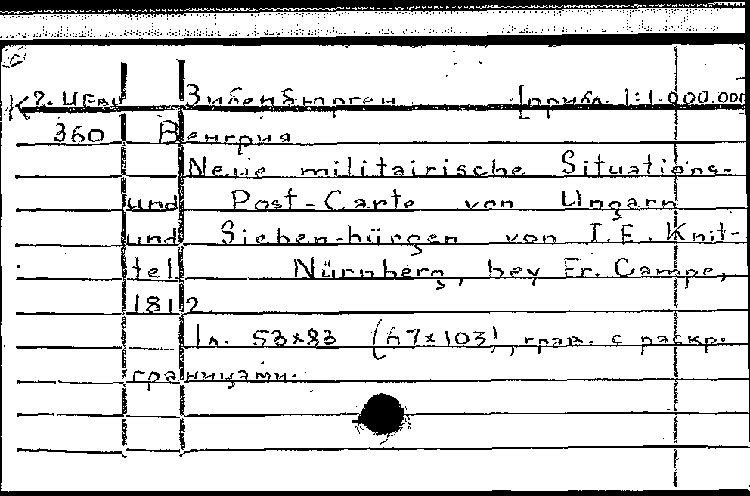 К 2. Цевр Зибенбюрген [прибл. 1:1.000.000
360 Венгрия
Neue militairische Situations-
und Post-Carte von Ungarn
und Sieben-bürgen von I.E. Knit-
tel Nürnberg, bey Fr. Campe,
1812
1 л. 53x83 (67x103), грав. с раскр.
границами.